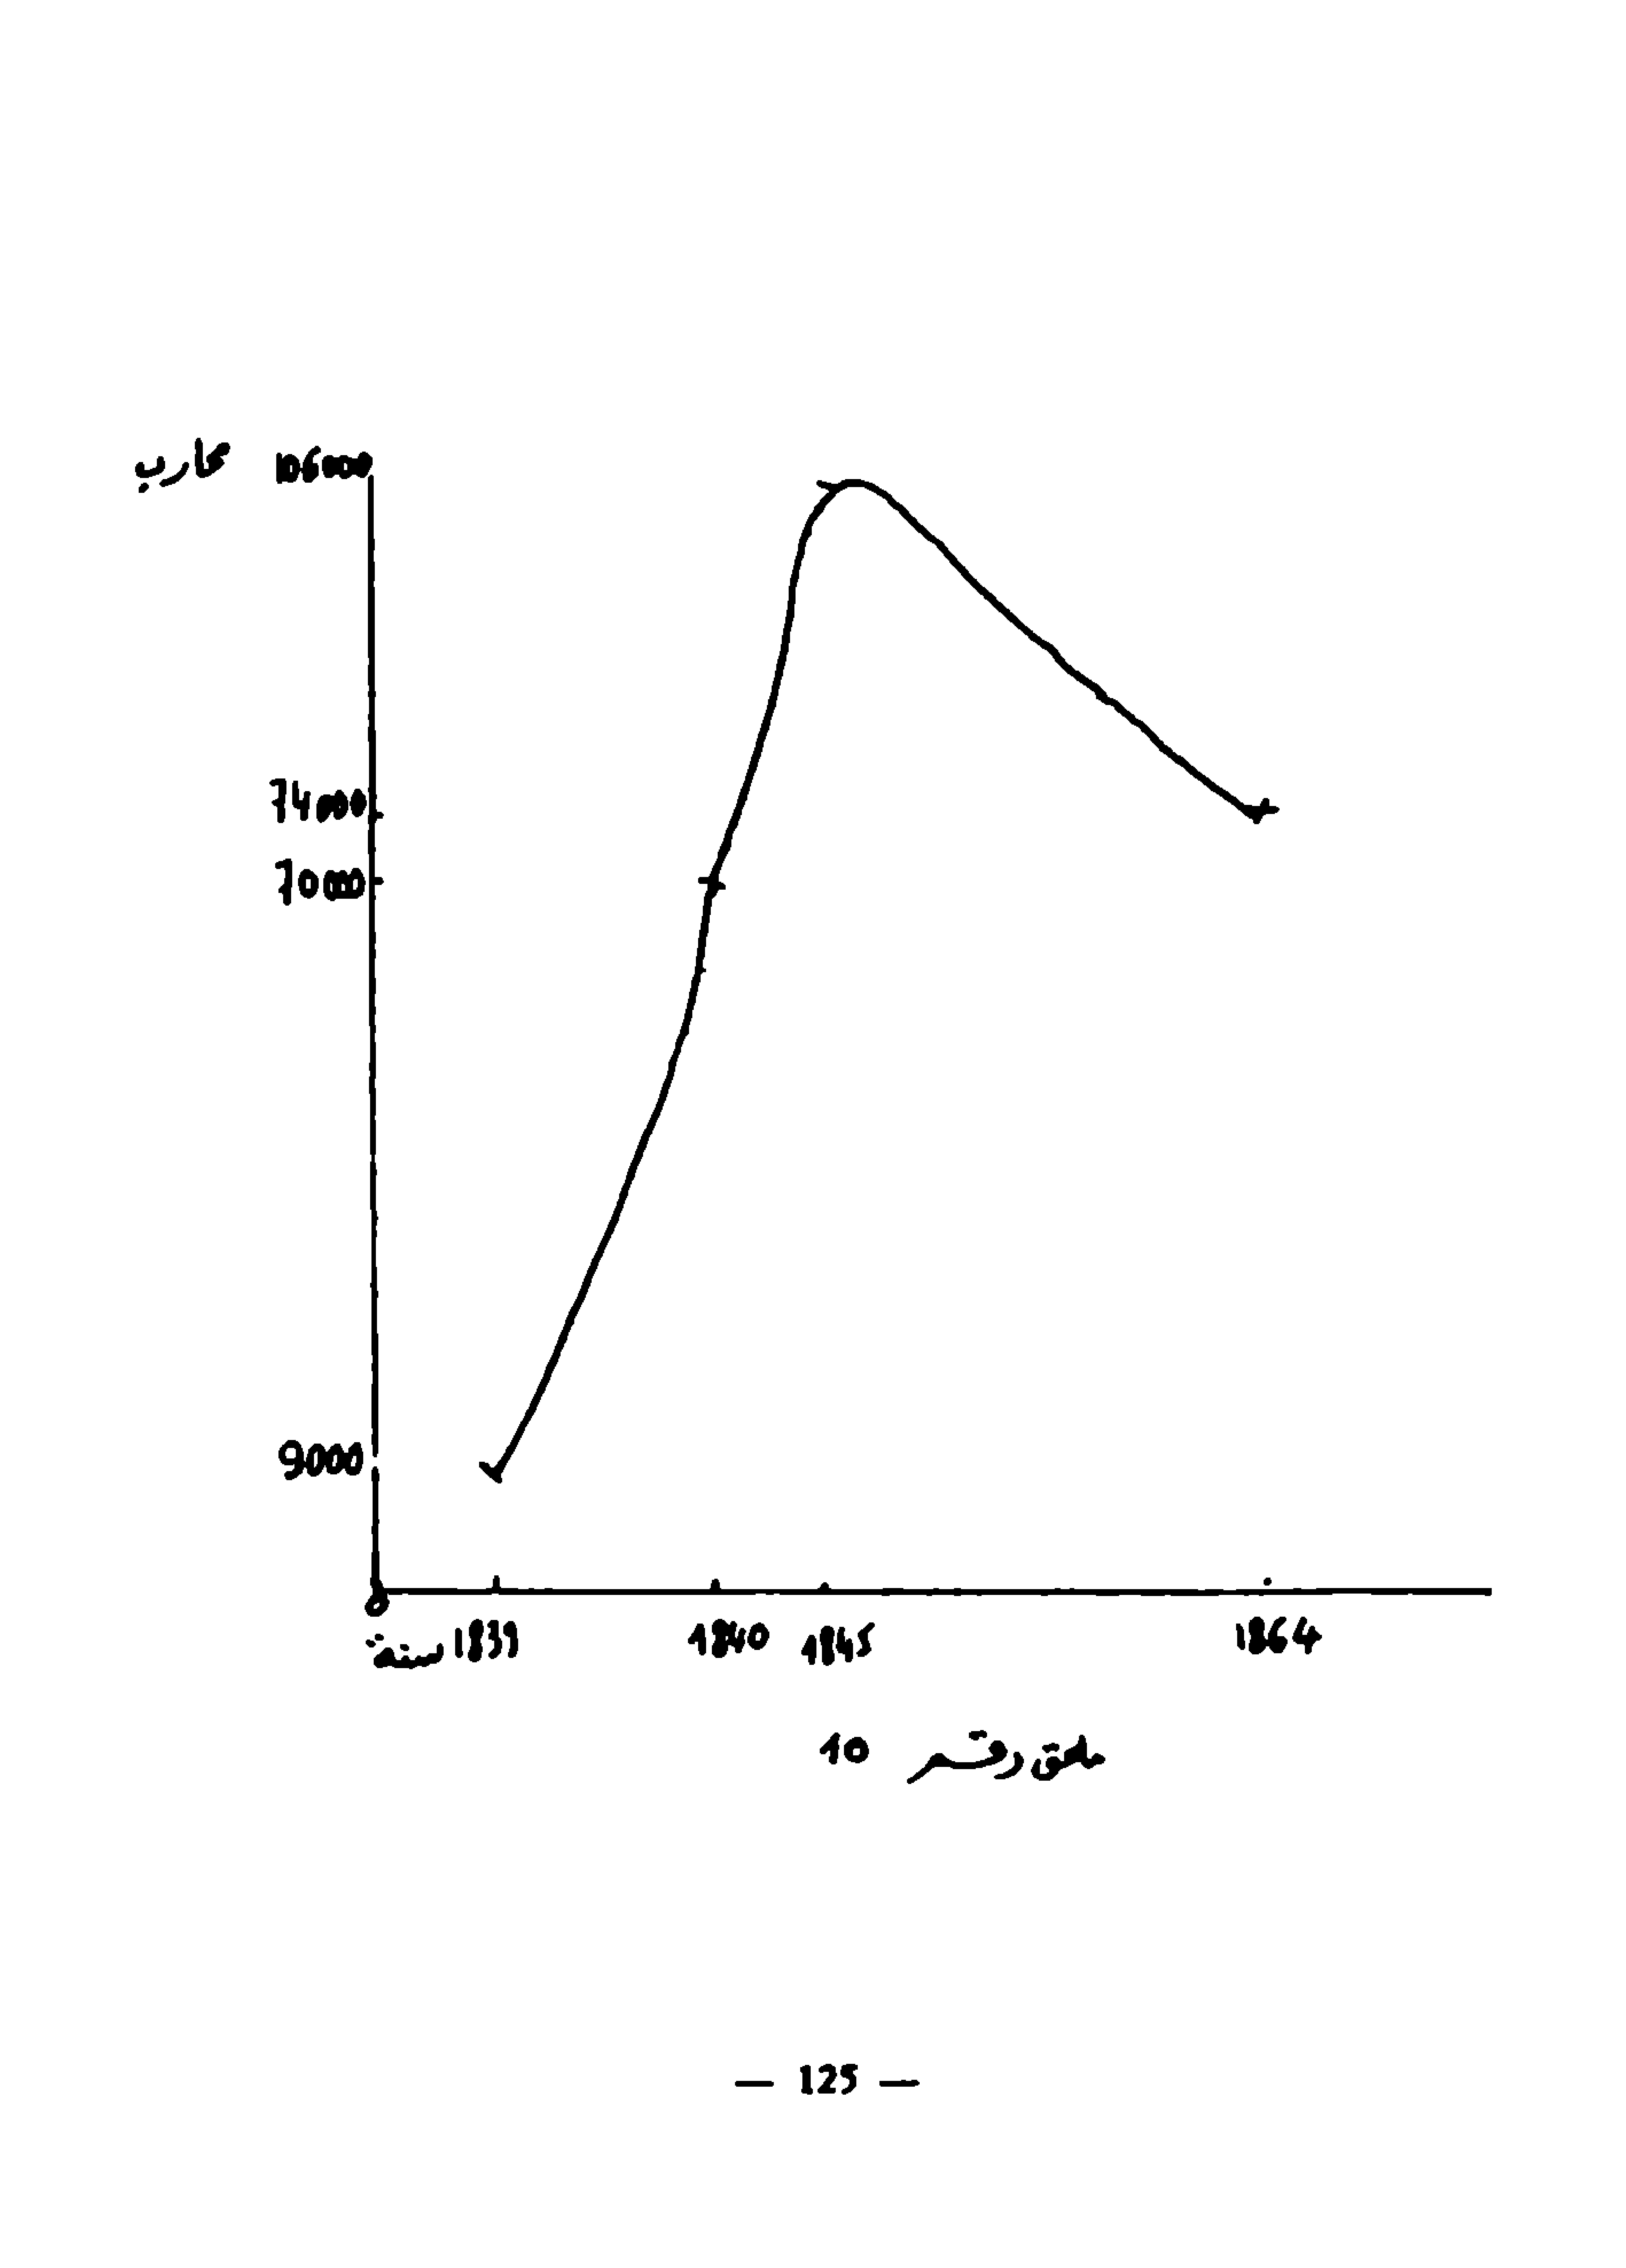 محارب 106000
74000
70000
9000
0
سنة 1839 1840 1845 1864
ملحق رقم 10
— 125 —